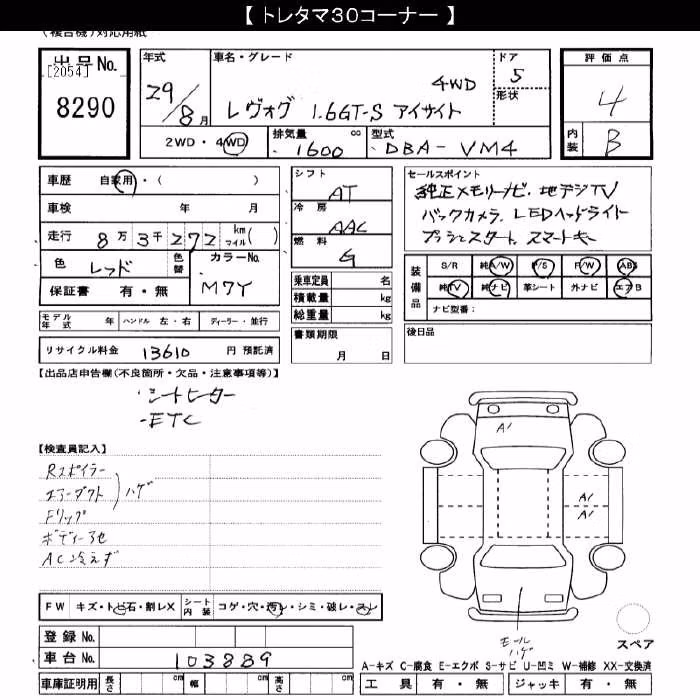 【 トレタマ30コーナー 】
(複合機)対応用紙
出品No.
[2054]
8290
年式
29/8月
車名・グレード
4WD
レヴォーグ 1.6GT-S アイサイト
ドア
5
形状
評価点
4
内装
B
2WD・4WD
排気量
cc
1600
型式
DBA-VM4
車歴 自家用・( )
車検 年 月
走行 8万3千272 km マイル( )
色 レッド 色替
カラーNo.
M7Y
保証書 有・無
シフト
AT
冷房
AAC
燃料
G
乗車定員 名
積載量 kg
総重量 kg
セールスポイント
純正メモリーナビ、地デジTV
バックカメラ、LEDヘッドライト
プッシュスタート、スマートキー
装備品
S/R 純A/W P/S P/W ABS
純TV 純ナビ 革シート 外ナビ エアB
ナビ型番:
モデル年式 年 ハンドル 左・右 ディーラー・並行
リサイクル料金 13610 円 預託済
書類期限
月 日
後日品
【出品店申告欄(不良箇所・欠品・注意事項等)】
・シートヒーター
・ETC
【検査員記入】
Rスポイラー
エアーダクト
Fリップ
ハゲ
ボディーアセ
AC冷えず
A1
A1
A1
モール
ハゲ
スペア
FW キズ・トビ石・割レX シート内装 コゲ・穴・汚レ・シミ・破レ・スレ
登録No.
車台No. 103889
車庫証明用 長さ cm 幅 cm 高さ cm
A-キズ C-腐食 E-エクボ S-サビ U-凹ミ W-補修 XX-交換済
工具 有・無 ジャッキ 有・無